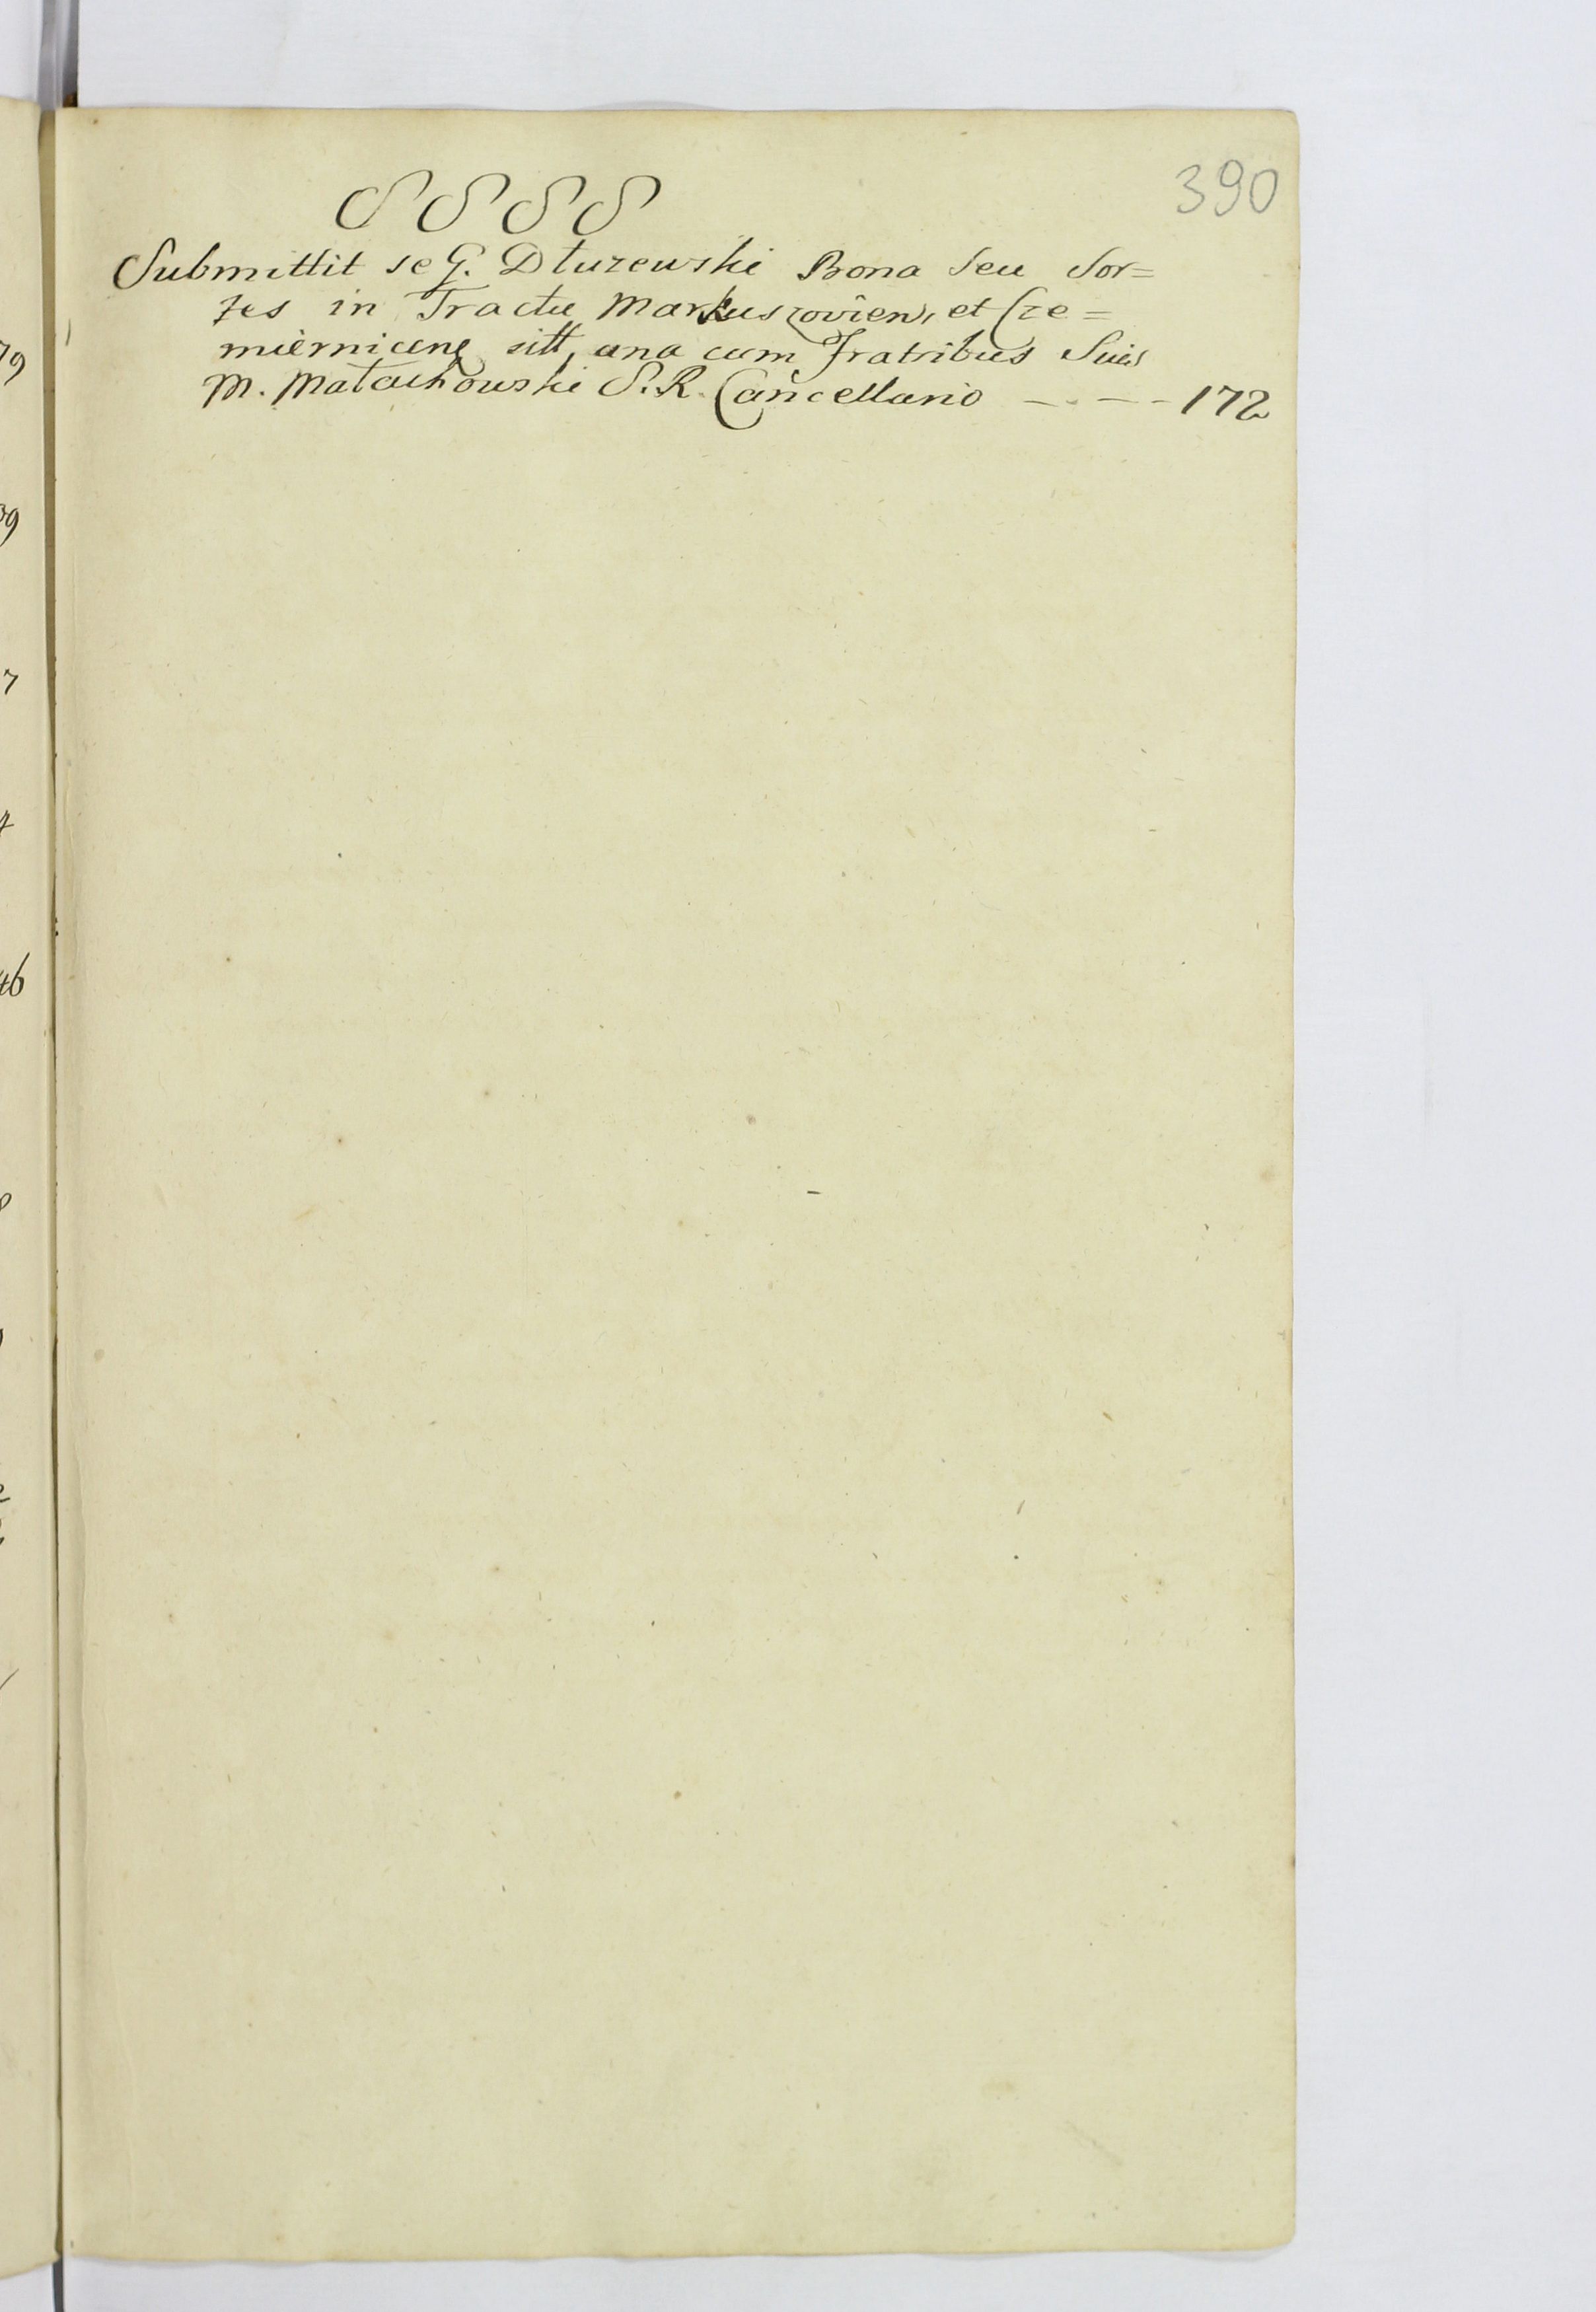 390
S S S S
Submittit se G. Dłuzewski Bona Seu Sor=
tes in Tractu Markuszovien, et Cze=
miernicens sitt, una cum Fratribus Suis
M. Małachowski S. R. Cancellario — . — — 172
79
39
7
4
46